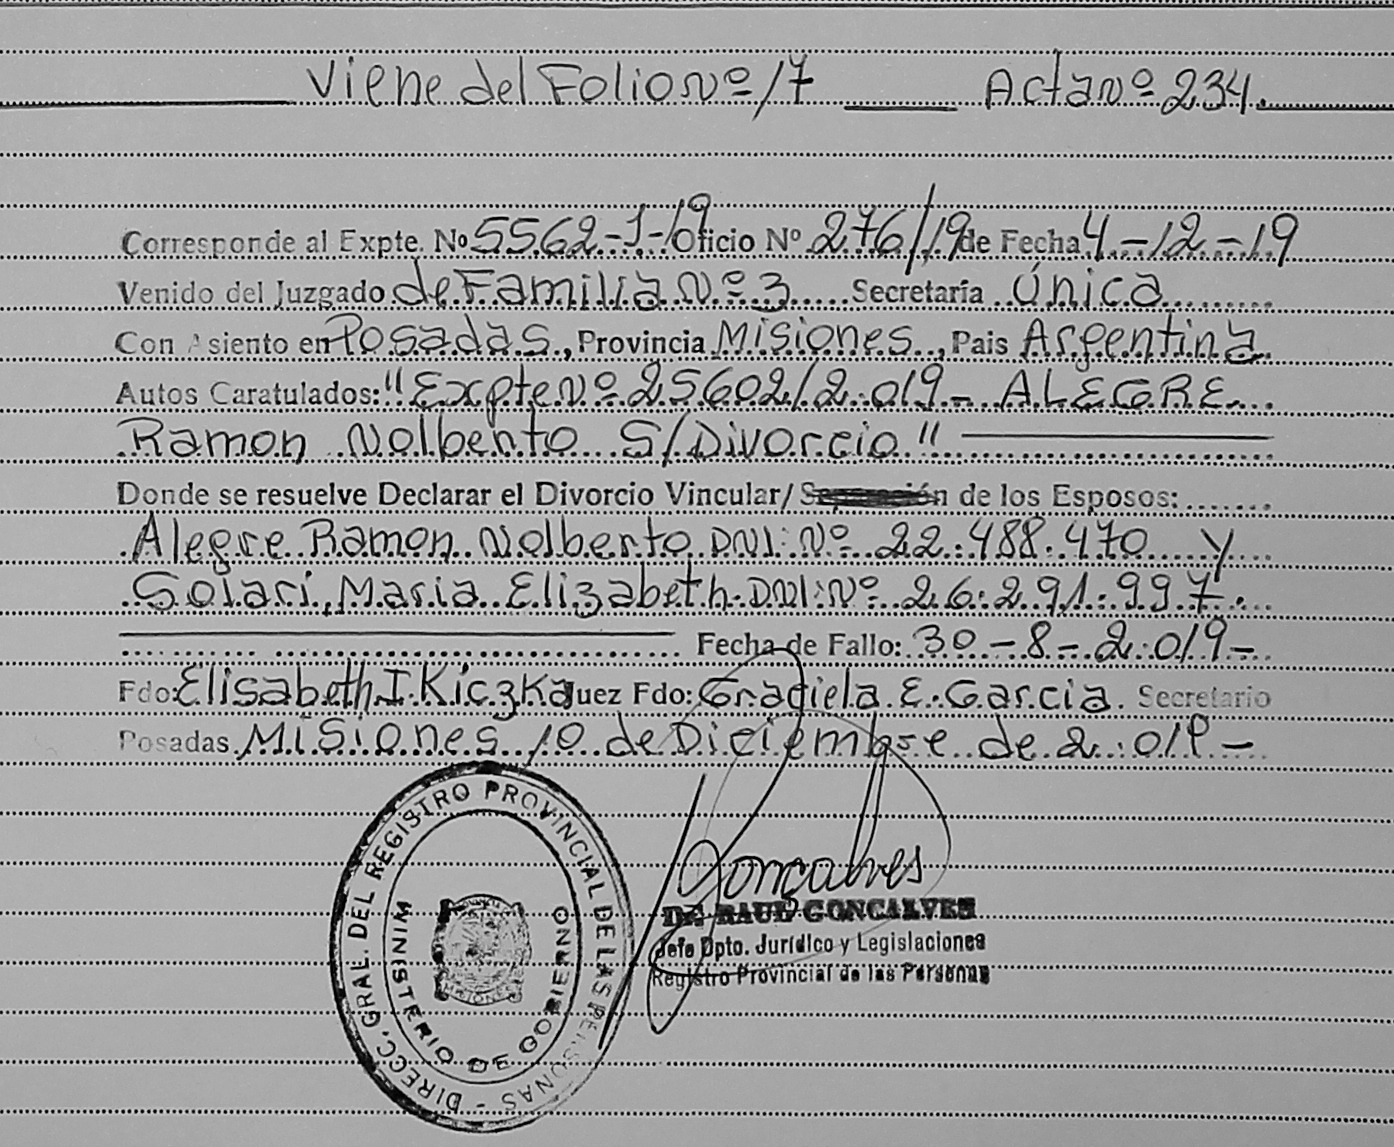 Viene del Folio Nº 17 Acta Nº 234.
Corresponde al Expte. Nº 5562-J-19 Oficio Nº 276/19 de Fecha 4-12-19
Venido del Juzgado de Familia Nº 3 Secretaría Única
Con Asiento en Posadas, Provincia Misiones, Pais Argentina
Autos Caratulados: "Expte Nº 25602/2.019- ALEGRE
Ramon Nolberto S/Divorcio"
Donde se resuelve Declarar el Divorcio Vincular/ de los Esposos:
Alegre Ramon Nolberto DNI: Nº 22.488.470 y
Solari, Maria Elizabeth. DNI: Nº 26.291.997.
Fecha de Fallo: 30-8-2.019-
Fdo: Elisabeth I. Kiczka Juez Fdo: Graciela E. Garcia. Secretario
Posadas Misiones 10 de Diciembre de 2.019-
DIRECC. GRAL. DEL REGISTRO PROVINCIAL DE LAS PERSONAS -
MINISTERIO DE GOBIERNO
MISIONES
Gonçalves
Dr. RAUL GONCALVES
Jefe Dpto. Jurídico y Legislaciones
Registro Provincial de las Personas